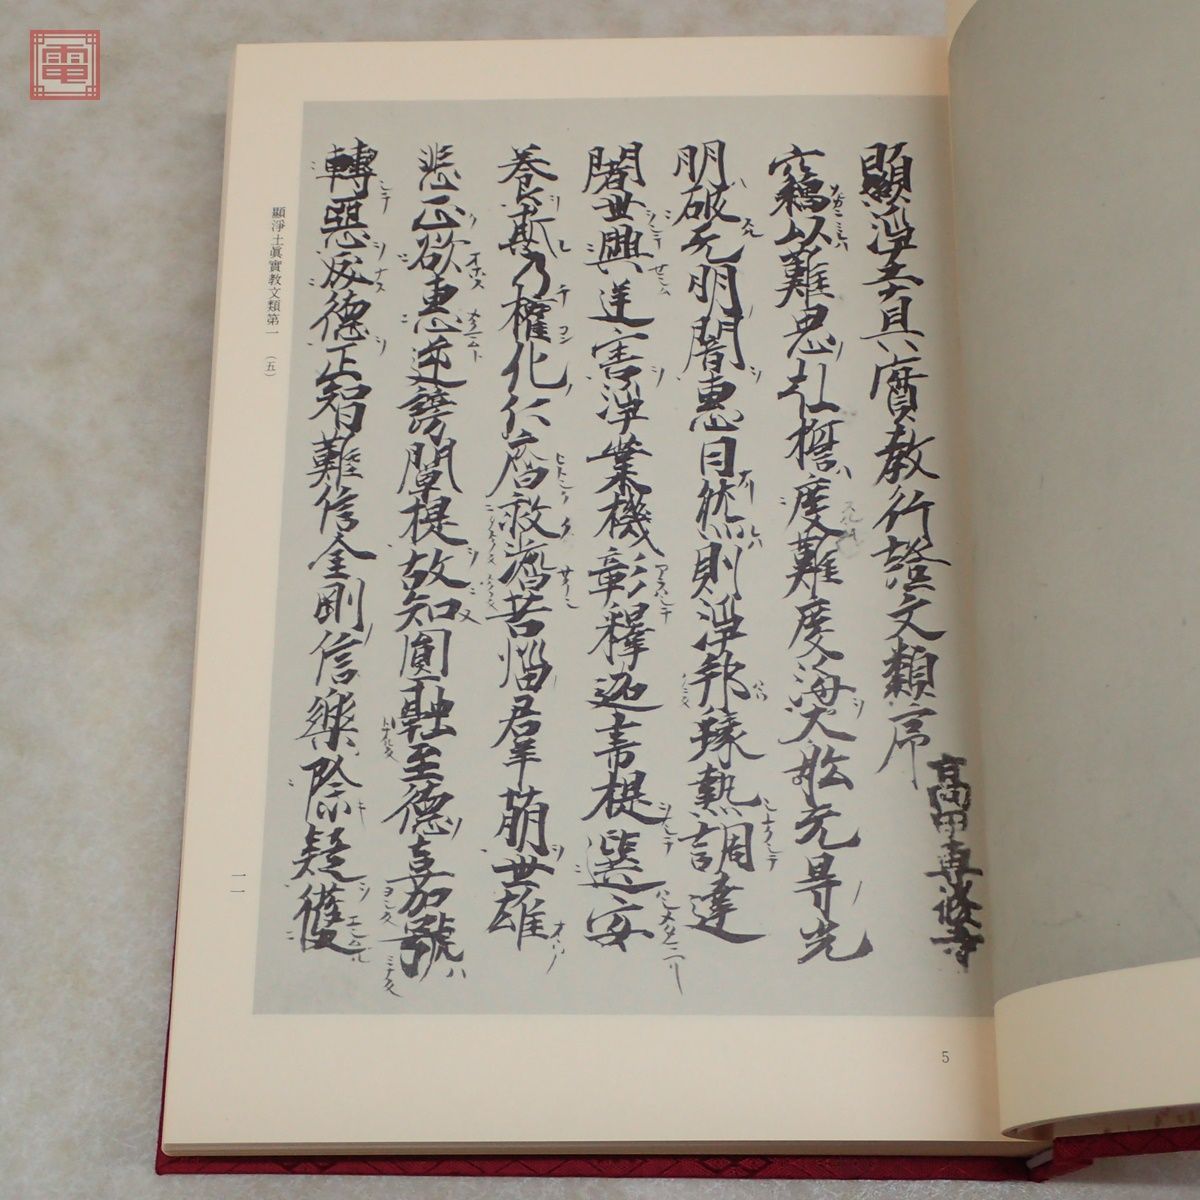 電
顯淨土眞實教行證文類序
高田専修寺
竊以難思弘誓度難度海大舩无㝵光
明破无明闇惠日然則淨邦縁熟調達
闍世興逆害淨業機彰釋迦韋提選安
養斯乃權化仁齊救濟苦惱群萠世雄
悲正欲惠逆謗闡提故知圓融至德嘉號
轉惡成德正智難信金剛信樂除疑獲
顯淨土眞實教文類第一 (五)
一一
5